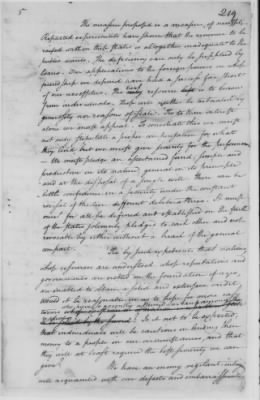 5 219
The measure proposed is a measure of necessity
Repeated experiments have shewn that the revenue to be
raised within these states is altogether inadequate to the
public wants. The deficiency can only be supplied by
loans. Our applications to the foreign powers on whose
friendship we depend have had a success far short
of our necessities. The next resource is to borrow
from individuals. These will neither be actuated by
generosity nor reasons of state. Tis to their interest
alone we must appeal. To conciliate this we must
not only stipulate a proper compensation for what
they lend but we must give security for the performance
We must pledge an ascertained fund, simple and
productive in its nature general in its principle
and at the disposal of a single will. There can be
little confidence in a security under the constant
revisal of thirteen different deliberatives. It must
once for all be defined and established on the faith
of the states solemnly pledged to each other and not
revocable by either without a breach of the general
compact.
Tis by such expedients that nations
whose resources are understood, whose reputations and
governments are erected on the foundation of ages,
are enabled to obtain a solid and extensive credit.
Would it be reasonable in us to hope for more easy
terms
Is it not to be expected
that individuals will be cautious in lending their
money to a people in our circumstances, and that
they will at least require the best security we can
give?
We have an enemy vigilant, intriguing
well acquainted with our defects and embarrassments